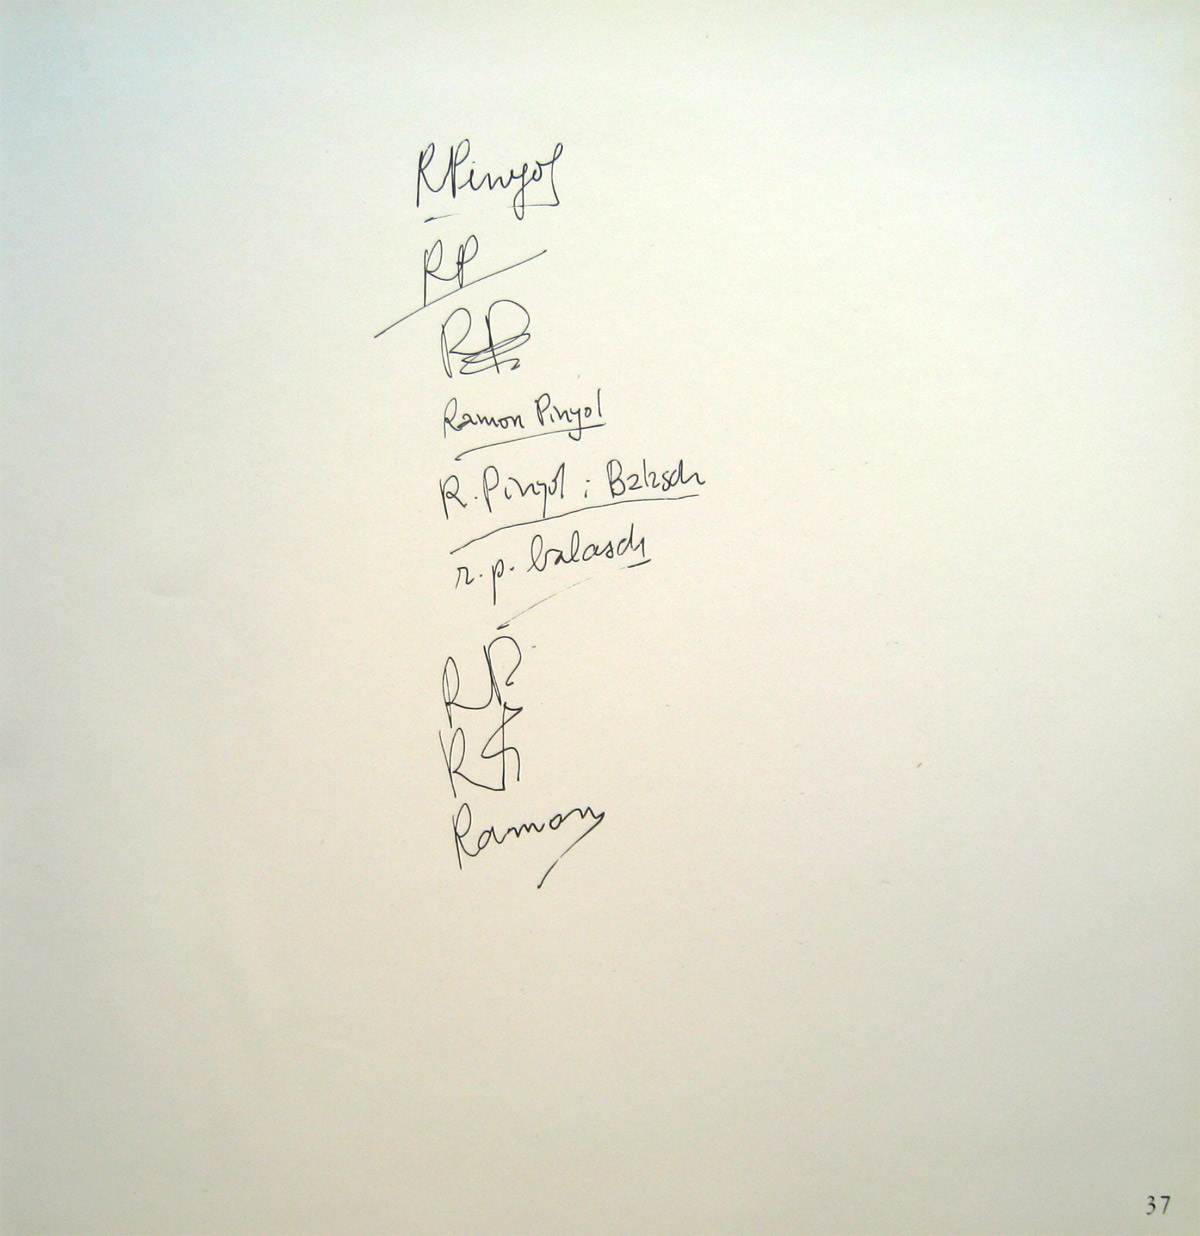 RPinyol
RP
RP
Ramon Pinyol
R. Pinyol i Balasch
r. p. balasch
RP
R
Ramon
37